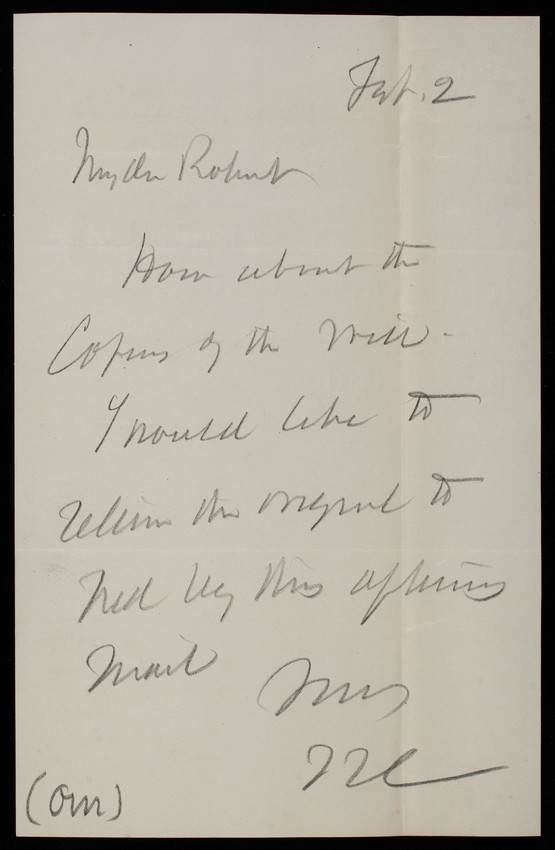 Feb. 2
My dear Robert
How about the
Copies of the Will -
I would like to
return the original to
Ned by this afternoons
Mail
Yours
TLC
(over)